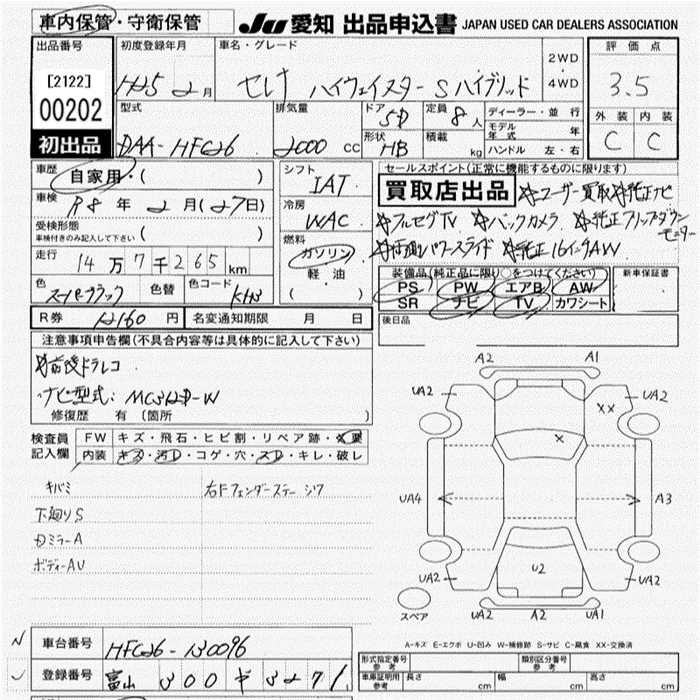 車内保管・守衛保管
JU 愛知 出品申込書 JAPAN USED CAR DEALERS ASSOCIATION
出品番号 初度登録年月 車名・グレード 評価点
[2122] H25 2月 セレナ ハイウェイスターSハイブリッド 2WD・4WD 3.5
00202
型式 排気量 ドア 5D 定員 8人 ディーラー・並行 外装 内装
初出品 DAA-HFC26 2000cc 形状 HB 積載 kg モデル年式 年 C C
ハンドル 左・右
車歴 自家用・( )
車検 R8年 2月(27日)
受検形態 ( )
車検付きのみ記入して下さい
走行 14万7千265km
色 スーパーブラック 色替 色コード KH3
R券 12160円 名変通知期限 月 日
シフト IAT
冷房 WAC
燃料 ガソリン
軽油
( )
セールスポイント(正常に機能するものに限ります)
買取店出品 ☆ユーザー買取☆純正ナビ
☆フルセグTV ☆バックカメラ ☆純正フリップダウンモニター
☆両側パワースライド ☆純正16インチAW
装備品(純正品に限り○をつけてください) 新車保証書
PS PW エアB AW
SR ナビ TV カワシート
後日品
注意事項申告欄(不具合内容等は具体的に記入して下さい)
☆前後ドラレコ
ナビ型式: MC312D-W
修復歴 有 (箇所 )
検査員記入欄 FW キズ・飛石・ヒビ割・リペア跡・要
内装 キズ・汚レ・コゲ・穴・スレ・キレ・破レ
キバミ 右Fフェンダーステー シワ
下廻りS
ミラーA
ボディーAU
A2 A1
UA2 UA2
XX
X
UA4 A3
U2
UA2 UA2
スペア UA2 A2 UA1
A-キズ E-エクボ U-凹み W-補修跡 S-サビ C-腐食 XX-交換済
N 車台番号 HFC26-130096
登録番号 富山 300 す 3271
型式指定番号 参考 類別区分番号 参考
車庫証明用 参考 長さ cm 幅 cm 高さ cm